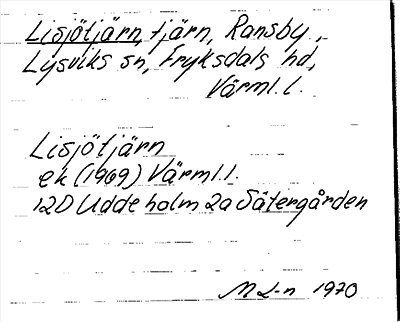 Lisjötjärn, tjärn, Ransby,
Lysviks sn, Fryksdals hd,
Värml. l.
Lisjötjärn
ek (1969) Värml. l.
12D Uddeholm 2a Sätergården
M L-n 1970